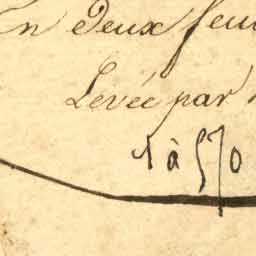 En deux feui
Levée par
1 à 570